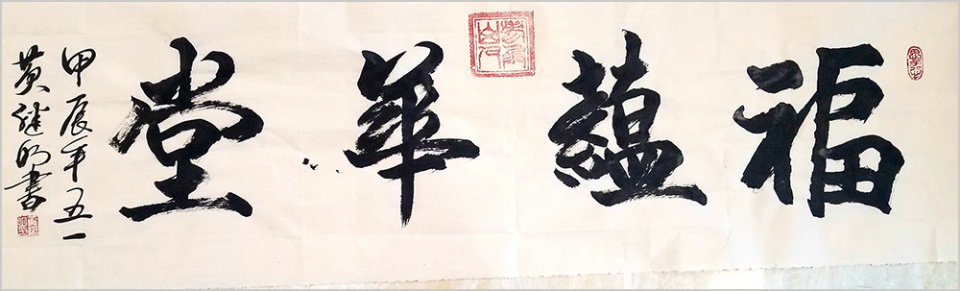 福蘊華堂
甲辰年五一
黄继明書